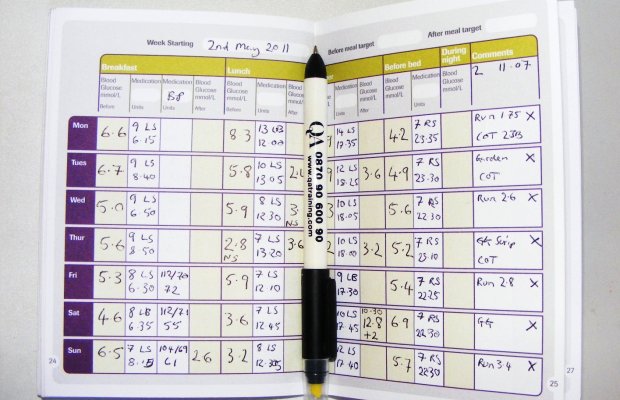 Week Starting 2nd May 2011
Before meal target
After meal target
Breakfast
Lunch
Before bed
During night
Comments
Blood Glucose mmol/L Before
Medication Units
Medication Units
BP
Blood Glucose mmol/L After
Blood Glucose mmol/L Before
Medication Units
Blood Glucose mmol/L
Medication Units
Blood Glucose mmol/L
2 11.07
Mon 6.6 9 LS 6.15 8.3 13 LB 12.00 14 LS 17.35 4.2 7 RS 23.35 Run 1.75 X
COT
Tues 6.7 9 LS 8.40 5.8 10 LS 13.05 12 LS 18.25 3.6 4.9 7 RS 23.30 Garden X
COT
Wed 5.0 9 LS 6.50 5.9 8 LS 12.30 3. NS 10 LS 18.05 5.6 7 RS 22.30 Run 2.6 X
Thur 5.6 9 LS 8.50 2.8 NS 7 LS 13.20 3.6 10 LS 18.00 3.2 5.2 7 RS 23.10 X
COT
Fri 5.3 8 LS 6.30 112/70 72 5.9 7 LS 12.10 9 LB 17.30 5.4 7 RS 22.25 Run 2.8 X
Sat 4.6 8 LB 6.35 112/71 55 3.6 7 LS 12.45 10 LS 17.45 10.30 12.8 +2 6.9 7 RS 22.30 GG X
Sun 6.5 7 LS 104/69 61 2.6 3.2 8 LS 12 LS 17.40 5.7 7 RS 22.30 Run 3.4 X
QA 0870 90 600 90
www.qatraining.com
24
25
27